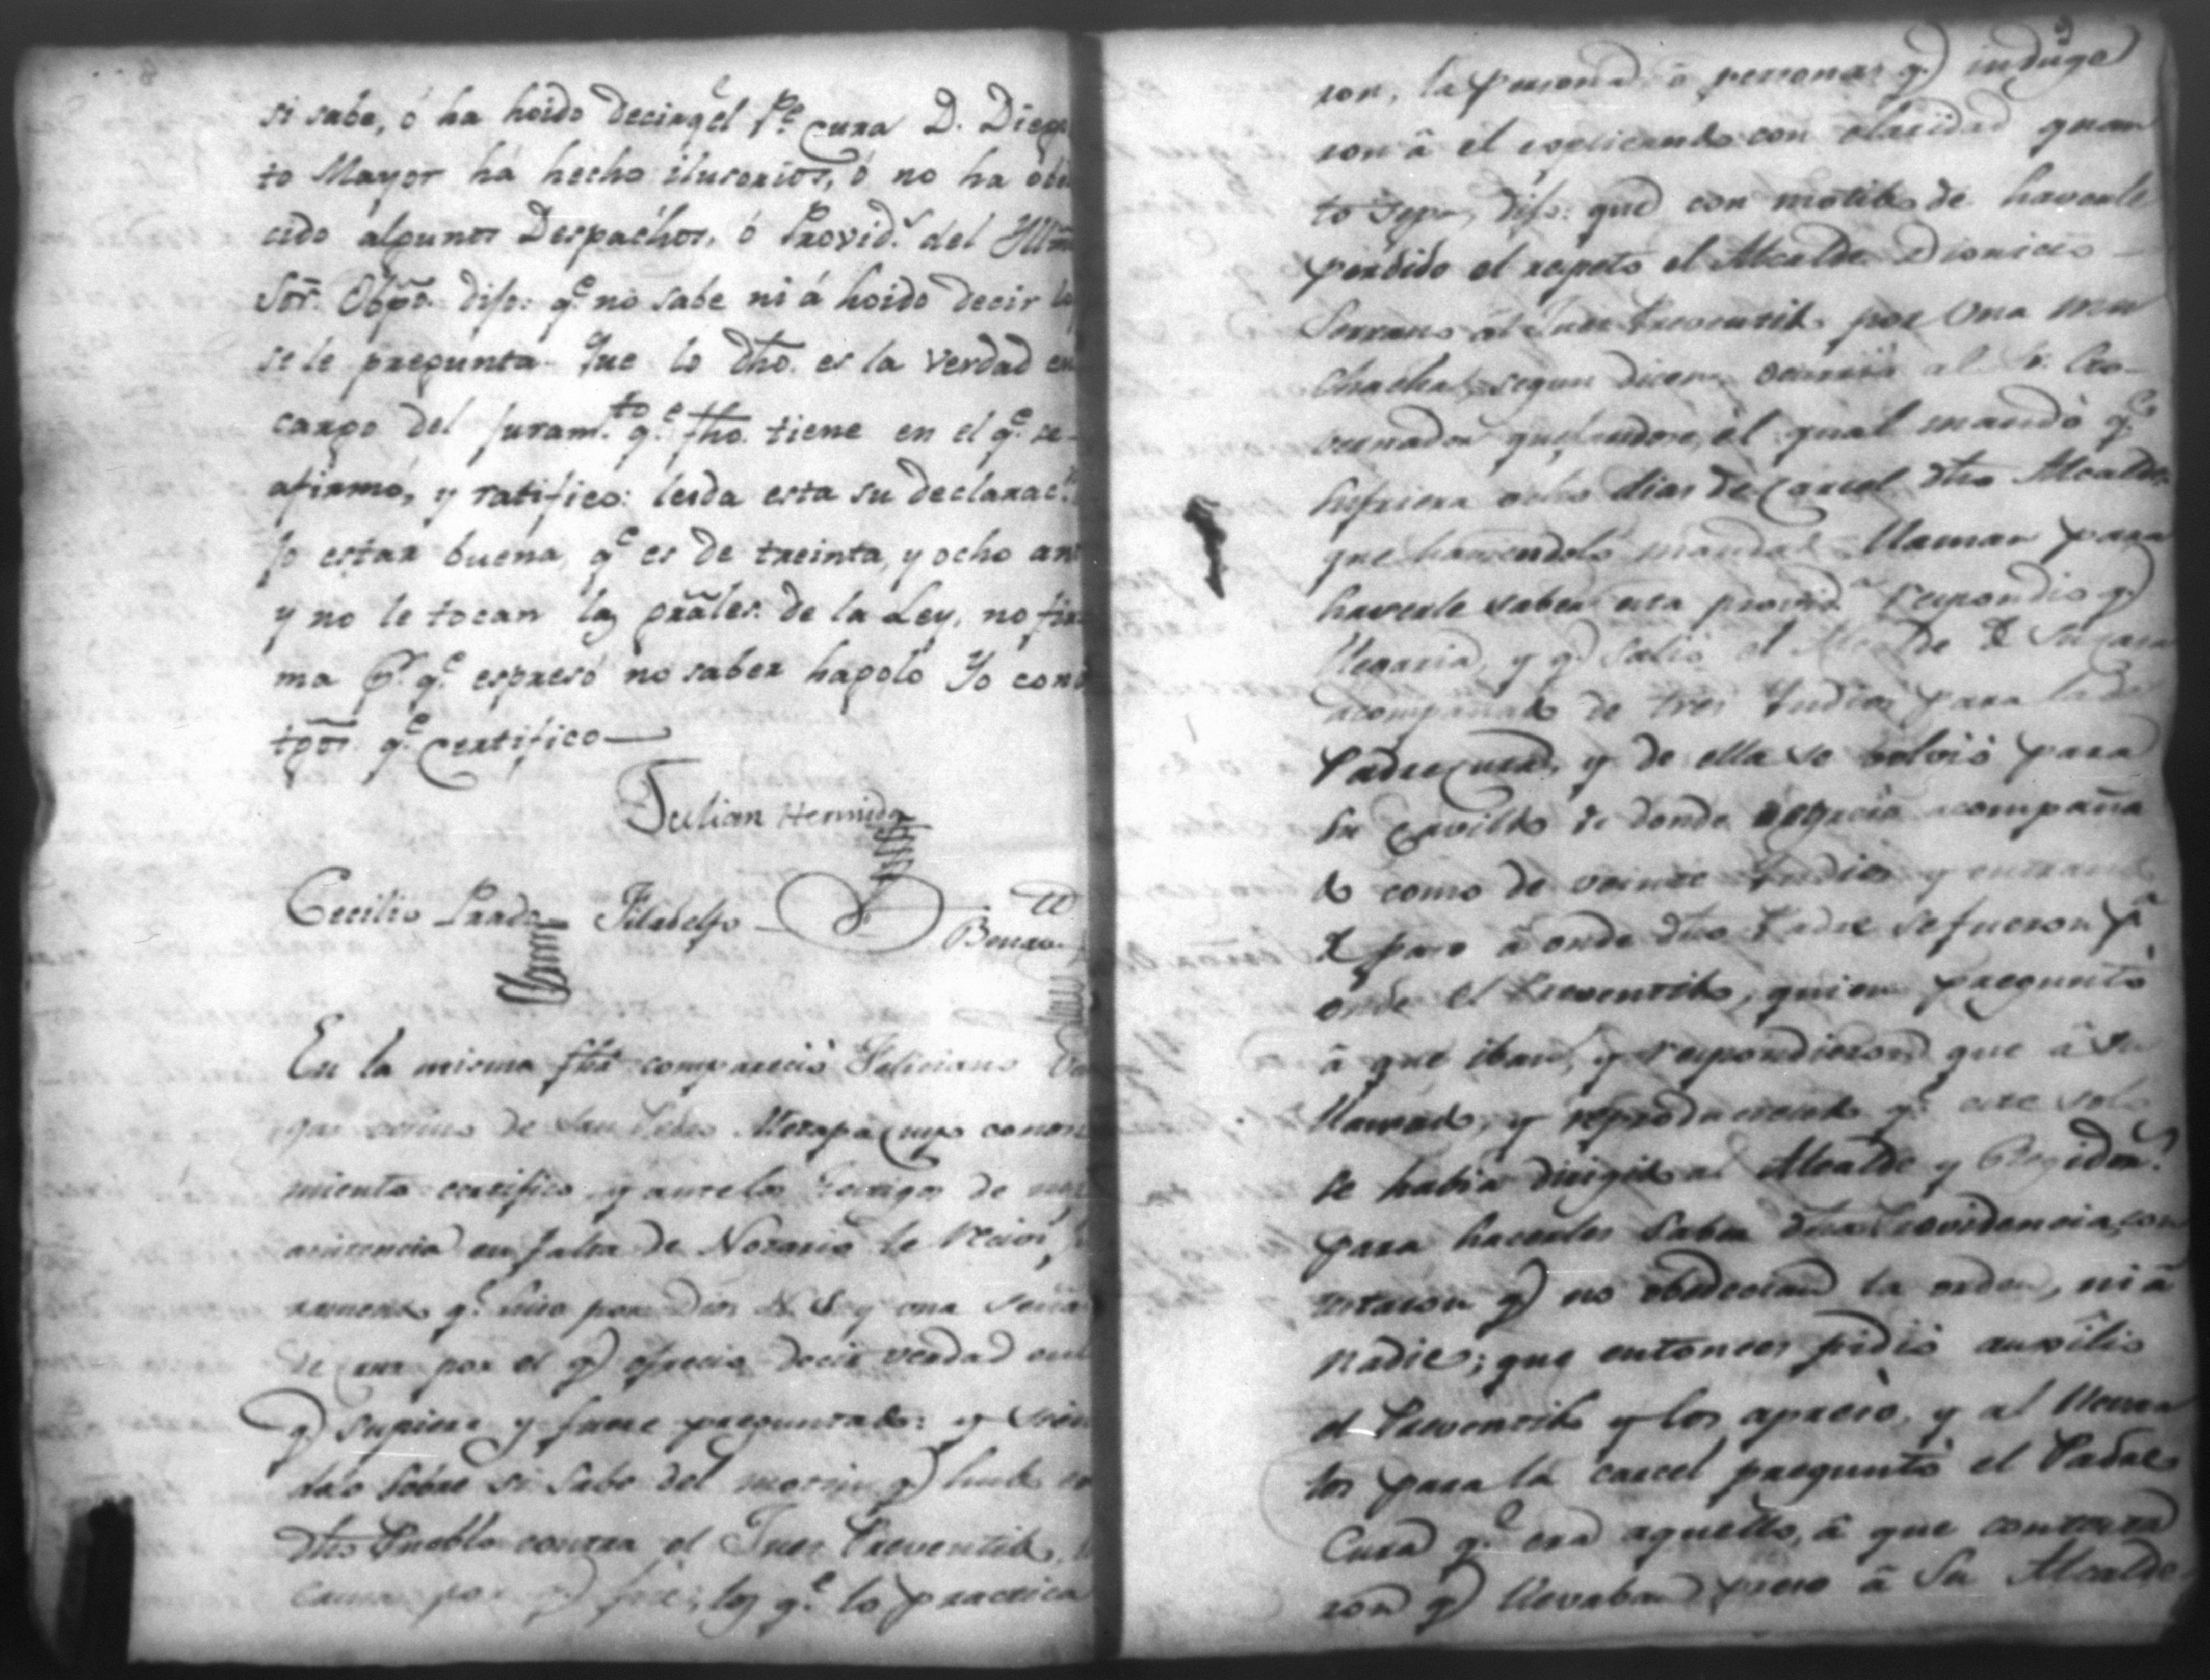 si sabe, ó ha hoido decir q.e el P.e cura D. Diego
to Mayor há hecho ilusorios, ó no ha obe
cido algunos Despachos, ó Provid.s del Yllm
Sor. Obpo. dijo: q.e no sabe ni á hoido decir lo
se le pregunta. Que lo dho. es la verdad en
cargo del juram.to q.e fho. tiene en el q.e se
afirmó, y ratifico: leida esta su declarac.n
jo estar buena, q.e es de treinta, y ocho añ
y no le tocan las grãles. de la Ley, no fir
ma p.r q.e espresó no saber hagolo Yo con
tgõs. q.e certifico
Julian Hermida
Cecilio Prado Filadelfo
En la misma fha compareció Feliciano
vecino de San Pedro Metapa cuyo conosi
miento certifico y ante los testigos de mi
asistencia en falta de Notario le recivi
ramento q.e hizo por Dios N. S. y una señal
de cruz por el q.e ofrecio decir verdad en lo
q.e supiere y fuere preguntado: y sien
dolo sobre si sabe del motin q.e hubo en
dho Pueblo contra el Juez Preventibo,
causa por q.e fue, los q.e lo practica
ron, la persona ó personas q.e induge
ron â el esplicando con claridad quan
to sepa, dijo: que con motibo de haverle
perdido el respeto el Alcalde Dionicio
Serrano al Juez Preventibo por una mu
chacha, segun dicen, ocurrió al Sr. Go-
vernador quejandose, el qual mandó q.e
sufriera ocho dias de carcel dho Alcalde,
que haviendolo mandado llamar para
haverle saber esta provid.a respondio q.e
llegaria, y q.e salió el Alcalde de su casa
acompañado de tres Yndios para la del
Padre cura, y de ella se bolvió para
su cavildo de donde regreció acompaña
do como de veinte Yndios y entrando
de paso â onde dho Padre se fueron p.a
onde el Preventibo, quien preguntó
â que iban, y respondieron que â su
llamado, y reproduciendo q.e este solo
se habia dirigido al Alcalde y Regidor.s
para hacerles saber dha Providencia, con
testaron q.e no obedecian la orden, ni â
nadie; que entonces pidió auxilio
el Preventibo y los apresó, y al llevar
los para la carcel preguntó el Padre
Cura q.e era aquello, â que contesta
ron q.e llevaban preso â su Alcalde